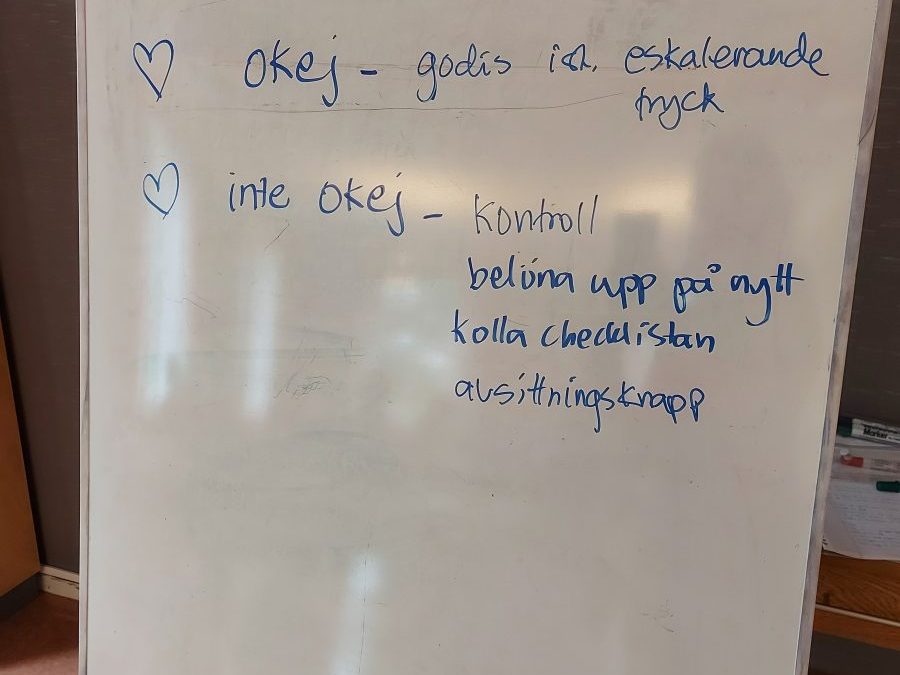 ♡ okej - godis ist. eskalerande
tryck
♡ inte okej - kontroll
belöna upp på nytt
kolla checklistan
avsittningsknapp
Marker